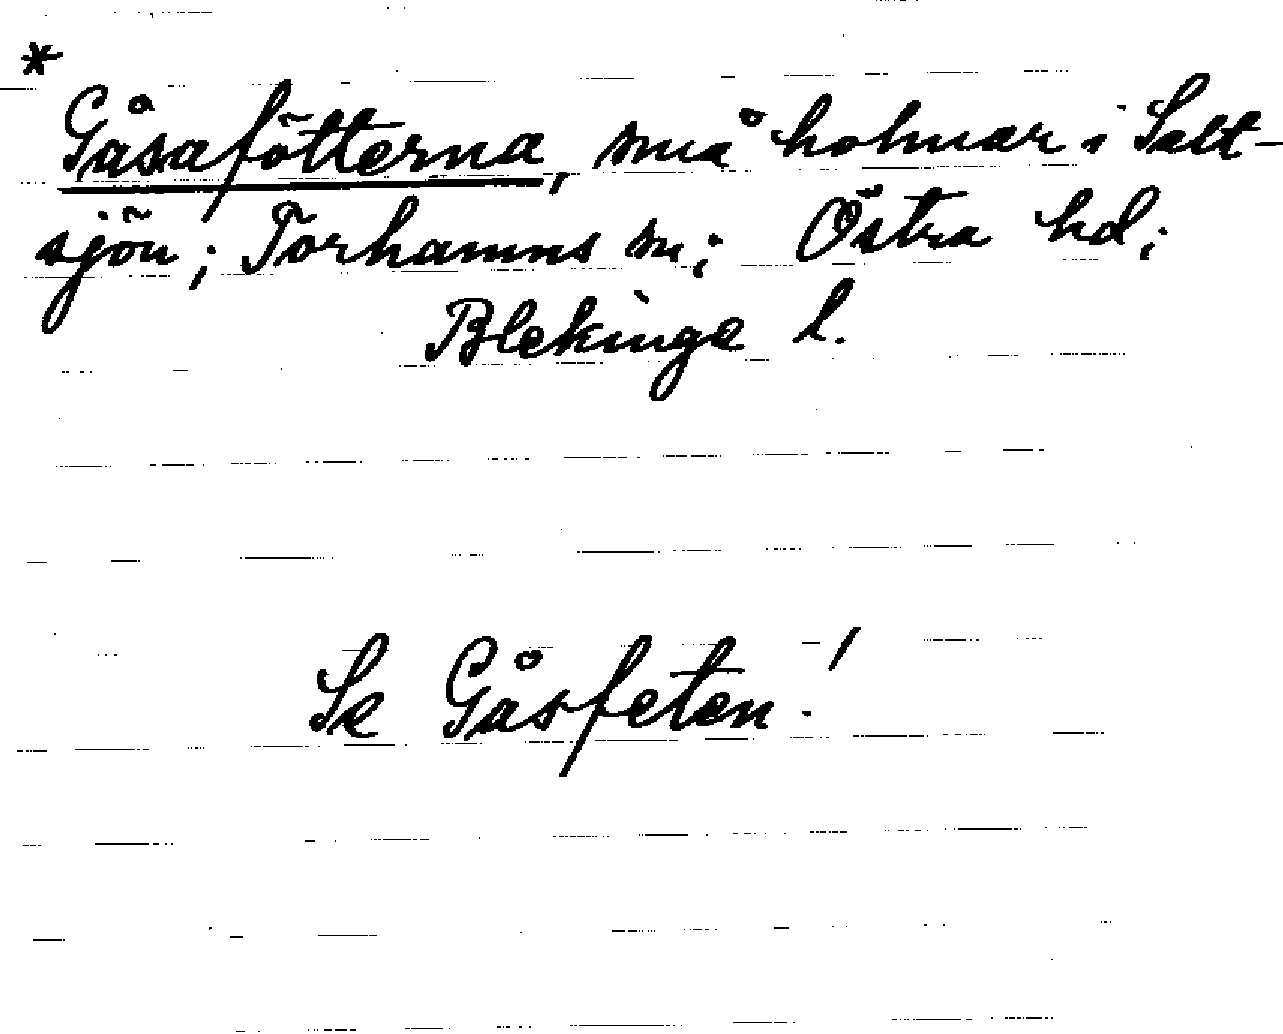 *
Gåsafötterna, små holmar i Salt-
sjön; Torhamns sn; Östra hd;
Blekinge l.
Se Gåsfeten!